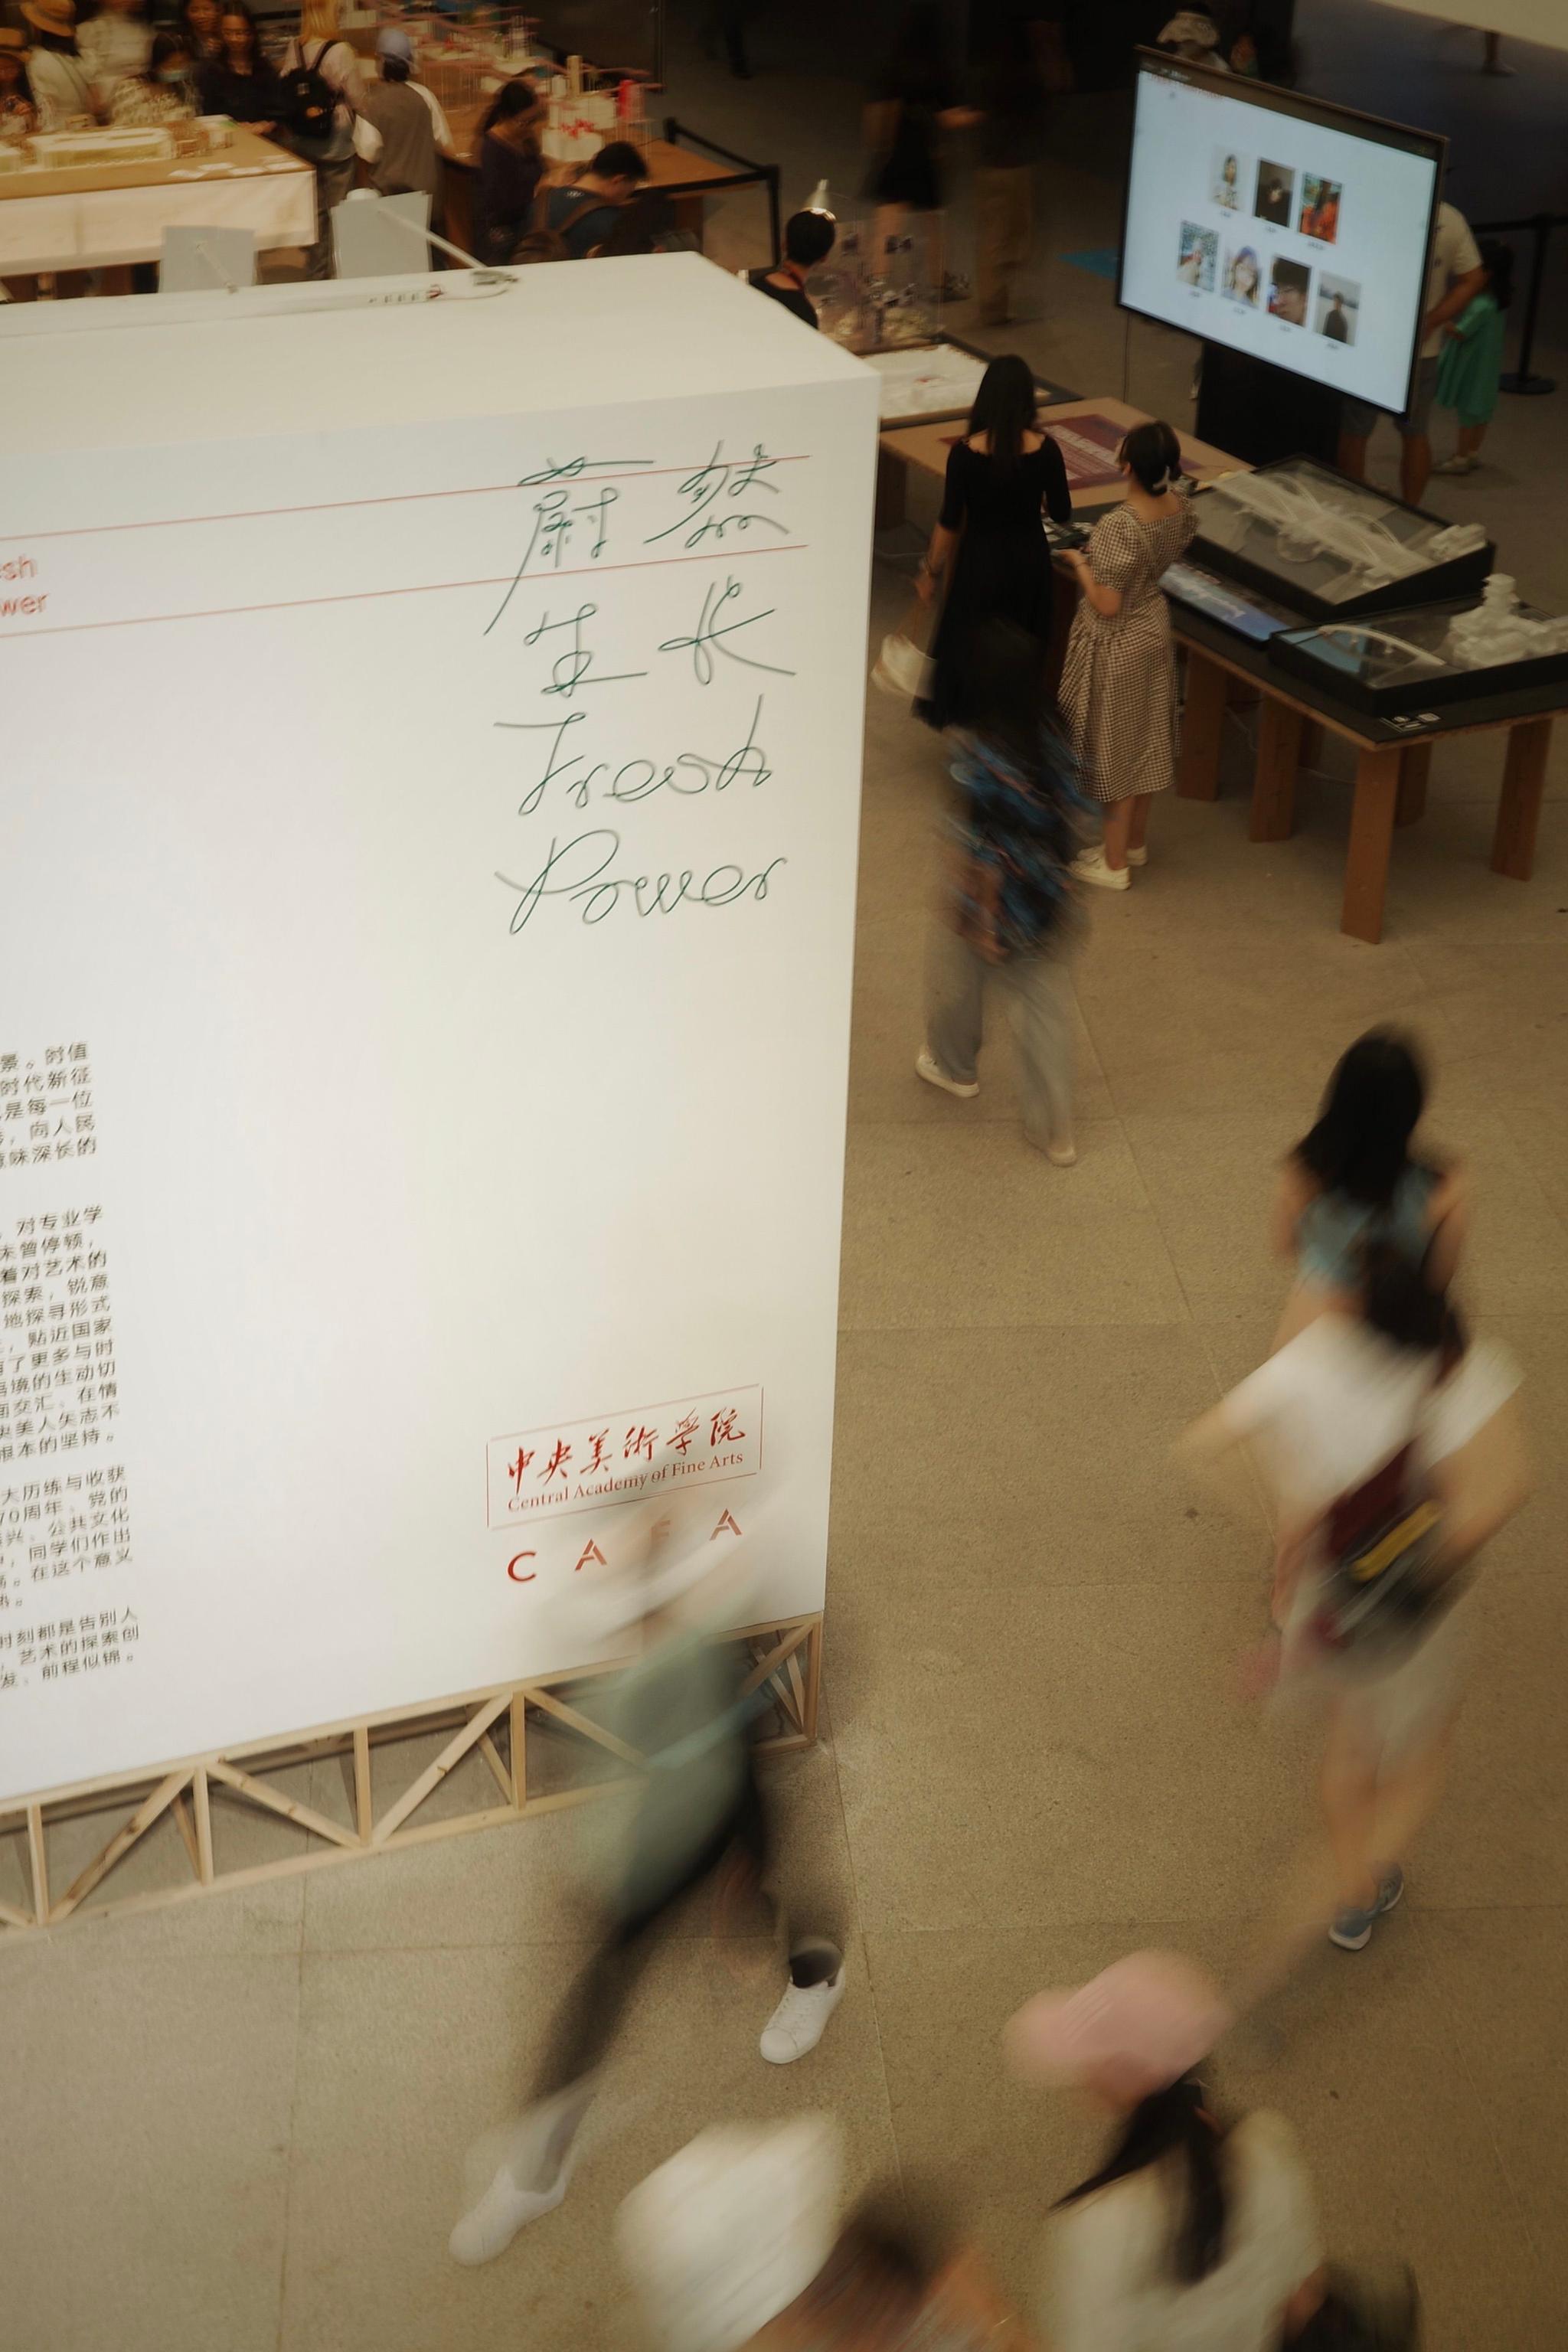 esh
wer
蔚然
生长
Fresh
Power
景。时值
时代新征
是每一位
，向人民
味深长的
，对专业学
未曾停顿，
着对艺术的
探索，锐意
地探寻形式
，贴近国家
了更多与时
境的生动切
面交汇、在情
央美人矢志不
根本的坚持。
大历练与收获
70周年、党的
兴、公共文化
，同学们作出
。在这个意义
。
时刻都是告别人
，艺术的探索创
发、前程似锦。
中央美術学院
Central Academy of Fine Arts
CAFA